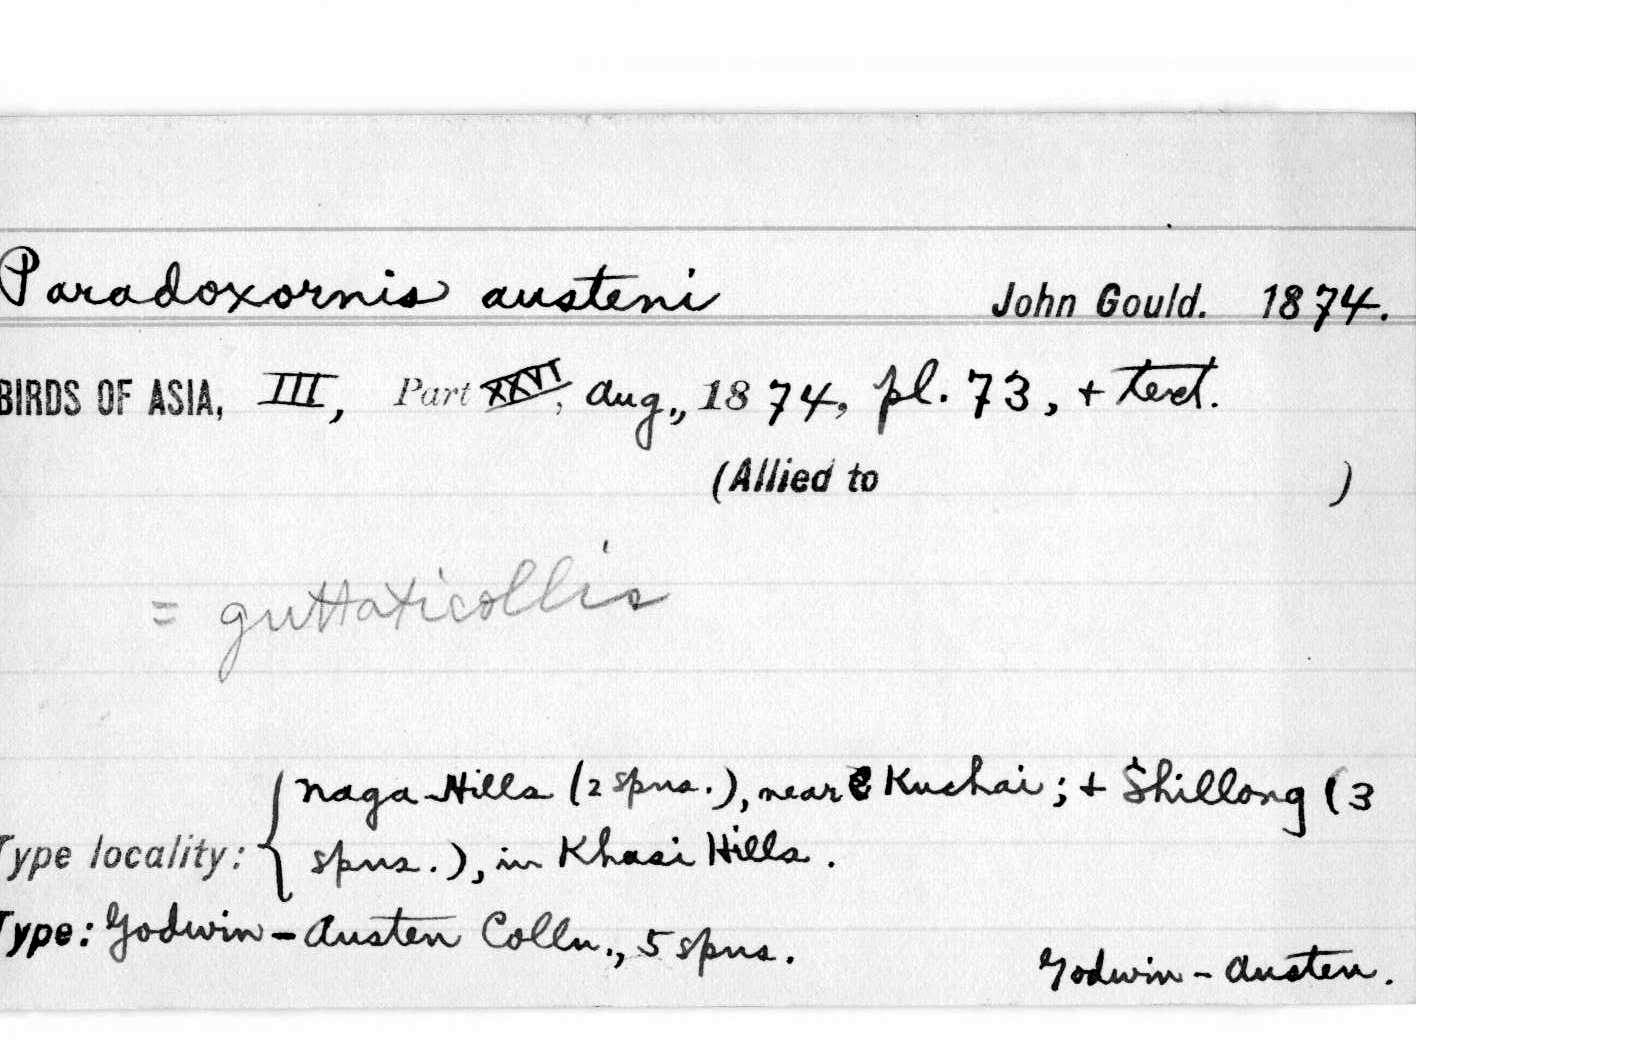 Paradoxornis austeni John Gould. 1874.
BIRDS OF ASIA, III, Part XXVI, Aug., 1874, pl. 73, + text.
(Allied to )
= guttaticollis
Naga Hills (2 spns.), near Kuchai; + Shillong (3
Type locality: spns.), in Khasi Hills.
Type: Godwin-Austen Colln., 5 spns.
Godwin-Austen.